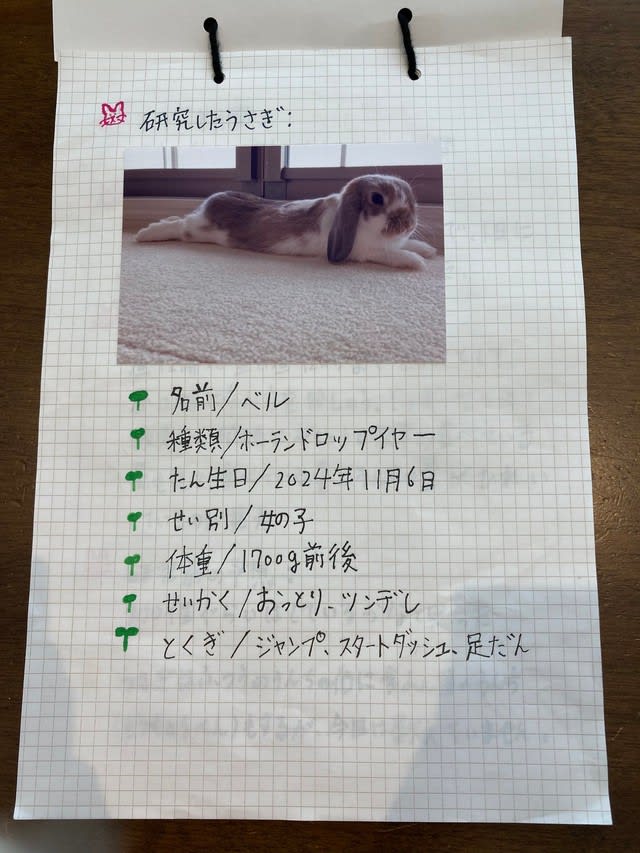 研究したうさぎ:
名前/ベル
種類/ホーランドロップイヤー
たん生日/2024年11月6日
せい別/女の子
体重/1700g前後
せいかく/おっとり、ツンデレ
とくぎ/ジャンプ、スタートダッシュ、足だん